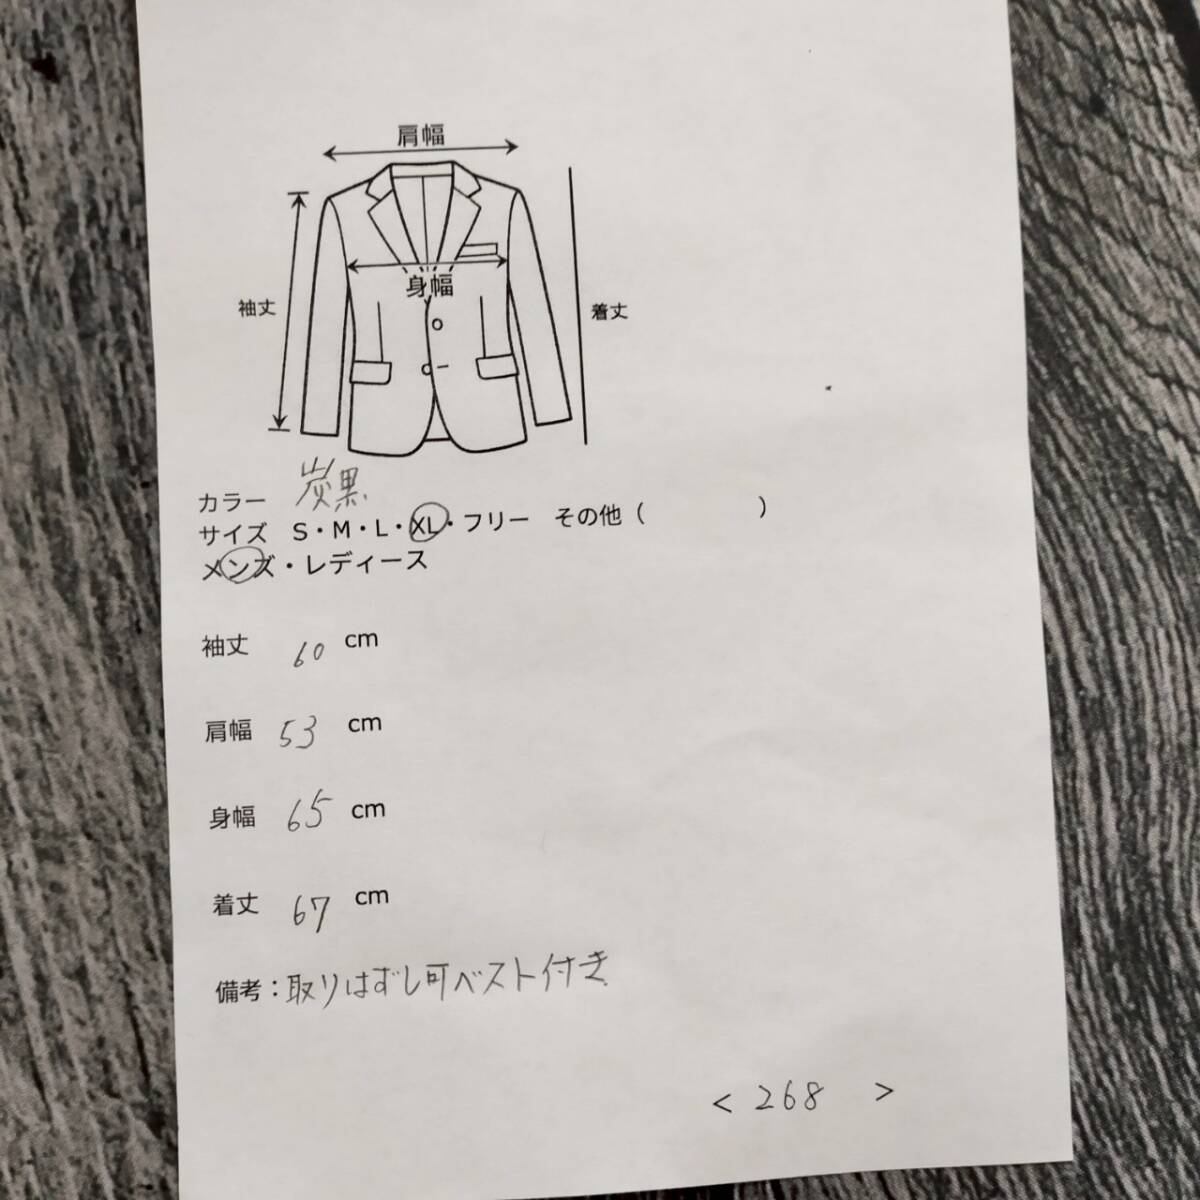 肩幅
袖丈
身幅
着丈
カラー 炭黒
サイズ S・M・L・XL・フリー その他（ ）
メンズ・レディース
袖丈 60 cm
肩幅 53 cm
身幅 65 cm
着丈 67 cm
備考：取りはずし可ベスト付き
< 268 >